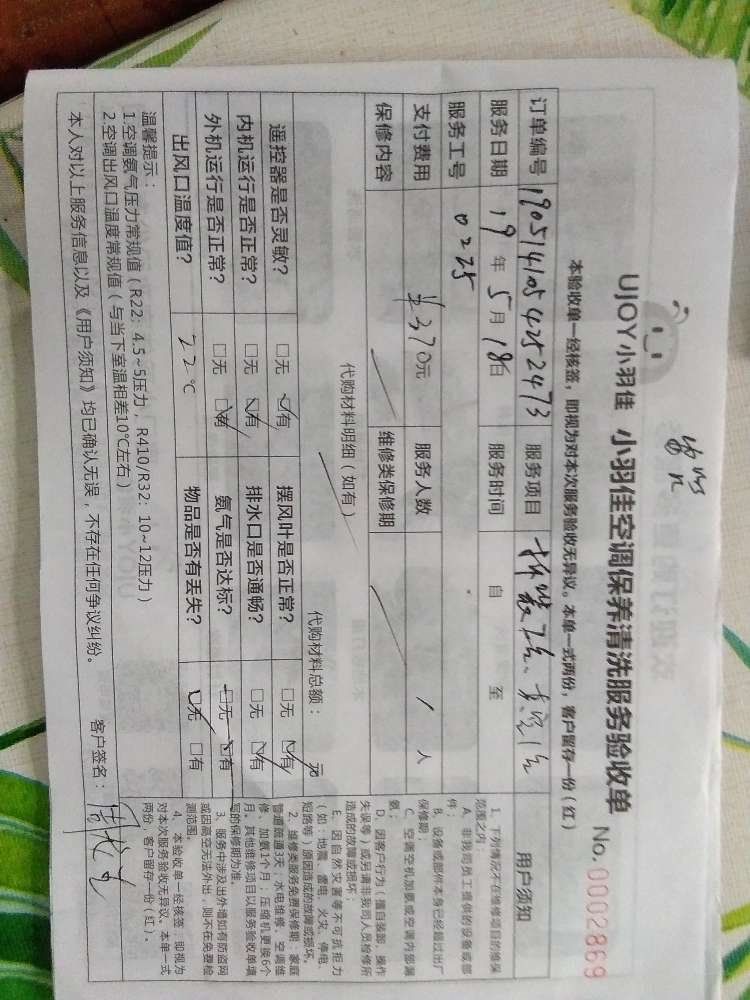 UJOY小羽佳 小羽佳空调保养清洗服务验收单
No. 0002869
本验收单一经核签，即视为对本次服务验收无异议。本单一式两份，客户留存一份（红）
订单编号 1905141054252473 服务项目
服务日期 19年5月18日 服务时间 自 至
服务工号 0225
支付费用 ¥370元 服务人数 1人
保修内容 维修类保修期
代购材料明细（如有） 代购材料总额： 元
遥控器是否灵敏？ □无 ☑有 摆风叶是否正常？ □无 ☑有
内机运行是否正常？ □无 ☑有 排水口是否通畅？ □无 ☑有
外机运行是否正常？ □无 ☑有 氨气是否达标？ □无 ☑有
出风口温度值？ 22℃ 物品是否有丢失？ ☑无 □有
温馨提示：
1.空调氨气压力常规值（R22: 4.5~5压力，R410/R32: 10~12压力）
2.空调出风口温度常规值（与当下室温相差10℃左右）
本人对以上服务信息以及《用户须知》均已确认无误，不存在任何争议纠纷。 客户签名：
用户须知
1、下列情况不在维修项目的维保
范围之内：
A、非我司员工提供的设备或部
件；
B、设备或部件本身已经超过出厂
保修期；
C、空调空机加氨或空调内部漏
氨；
D、因客户行为（擅自装卸、操作
失误等）或另请非我司人员检修所
造成的故障或损坏；
E、因自然灾害等不可抗拒力
（如：地震、雷电、火灾、停电、
短路等）原因造成的故障或损坏。
2、维修类服务免费保修期：家庭
管道疏通3天、水电维修、空调维
修、加氨1个月；压缩机更换6个
月。其他维修项目以服务验收单填
写的保修期为准。
3、服务中涉及出外墙如有防盗网
或因高空无法外出，则不在免费检
测范围。
4、本验收单一经核签，即视为
对本次服务验收无异议。本单一式
两份，客户留存一份（红）。